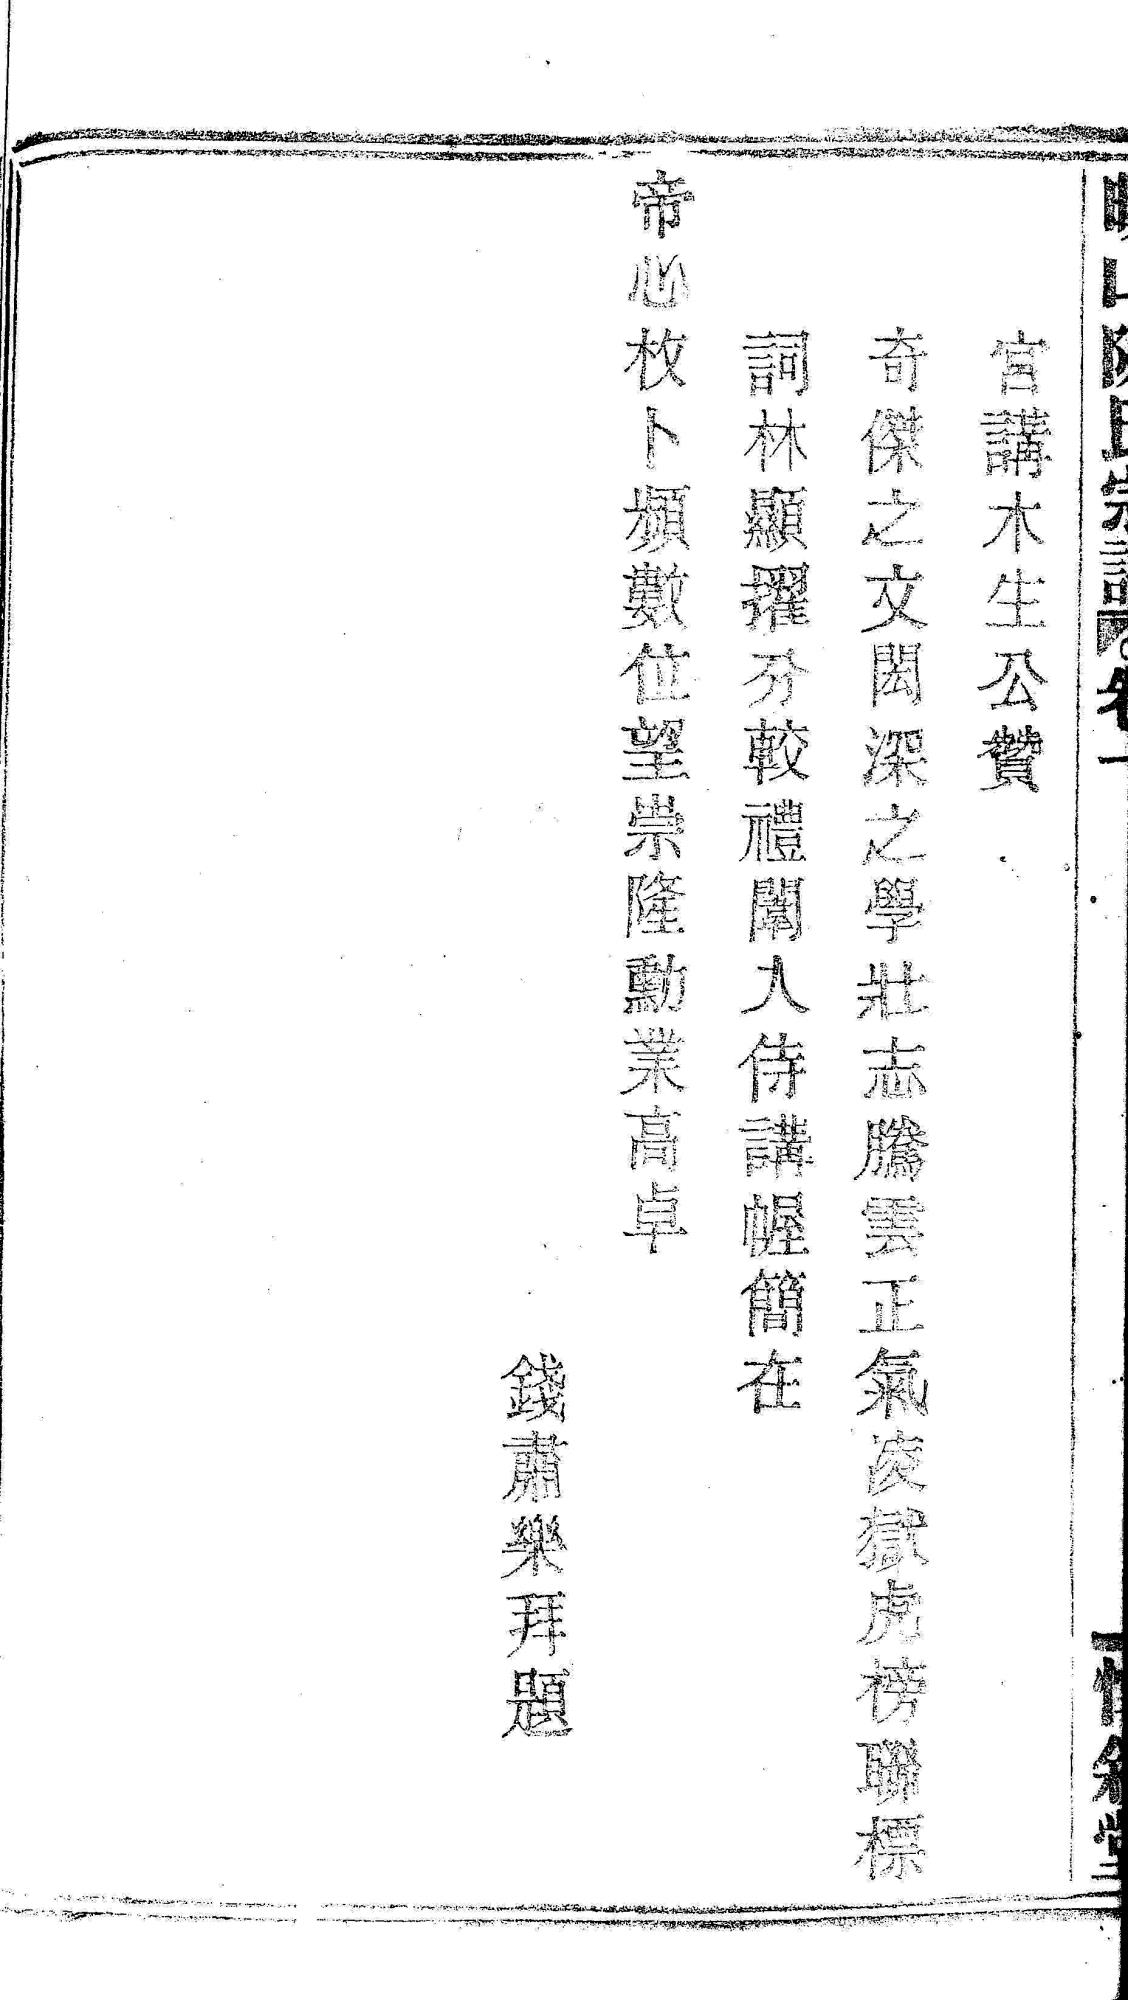 山陳氏宗譜 卷一
宮講木生公贊
奇傑之文閎深之學壯志騰雲正氣凌獄虎榜聯標
詞林顯擢分較禮闈入侍講幄簡在
帝心枚卜頻數位望崇隆勳業高卓
錢肅樂拜題